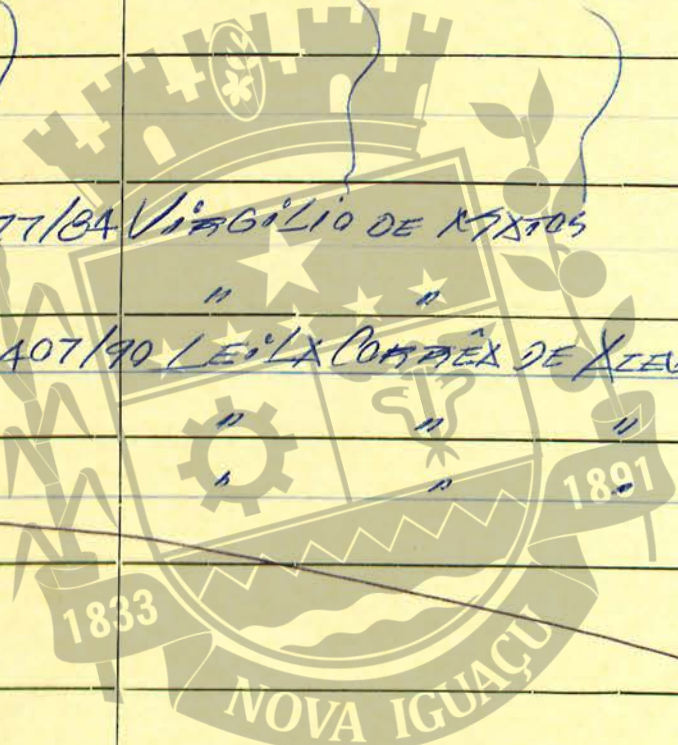 77/84 VIRGÍLIO DE MATOS
" "
407/90 LEILA CORRÊA DE AZEV
" " "
" " "
1891
1833
NOVA IGUAÇU